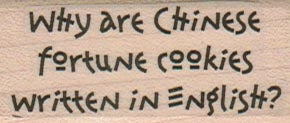 Why are Chinese
fortune cookies
written in English?